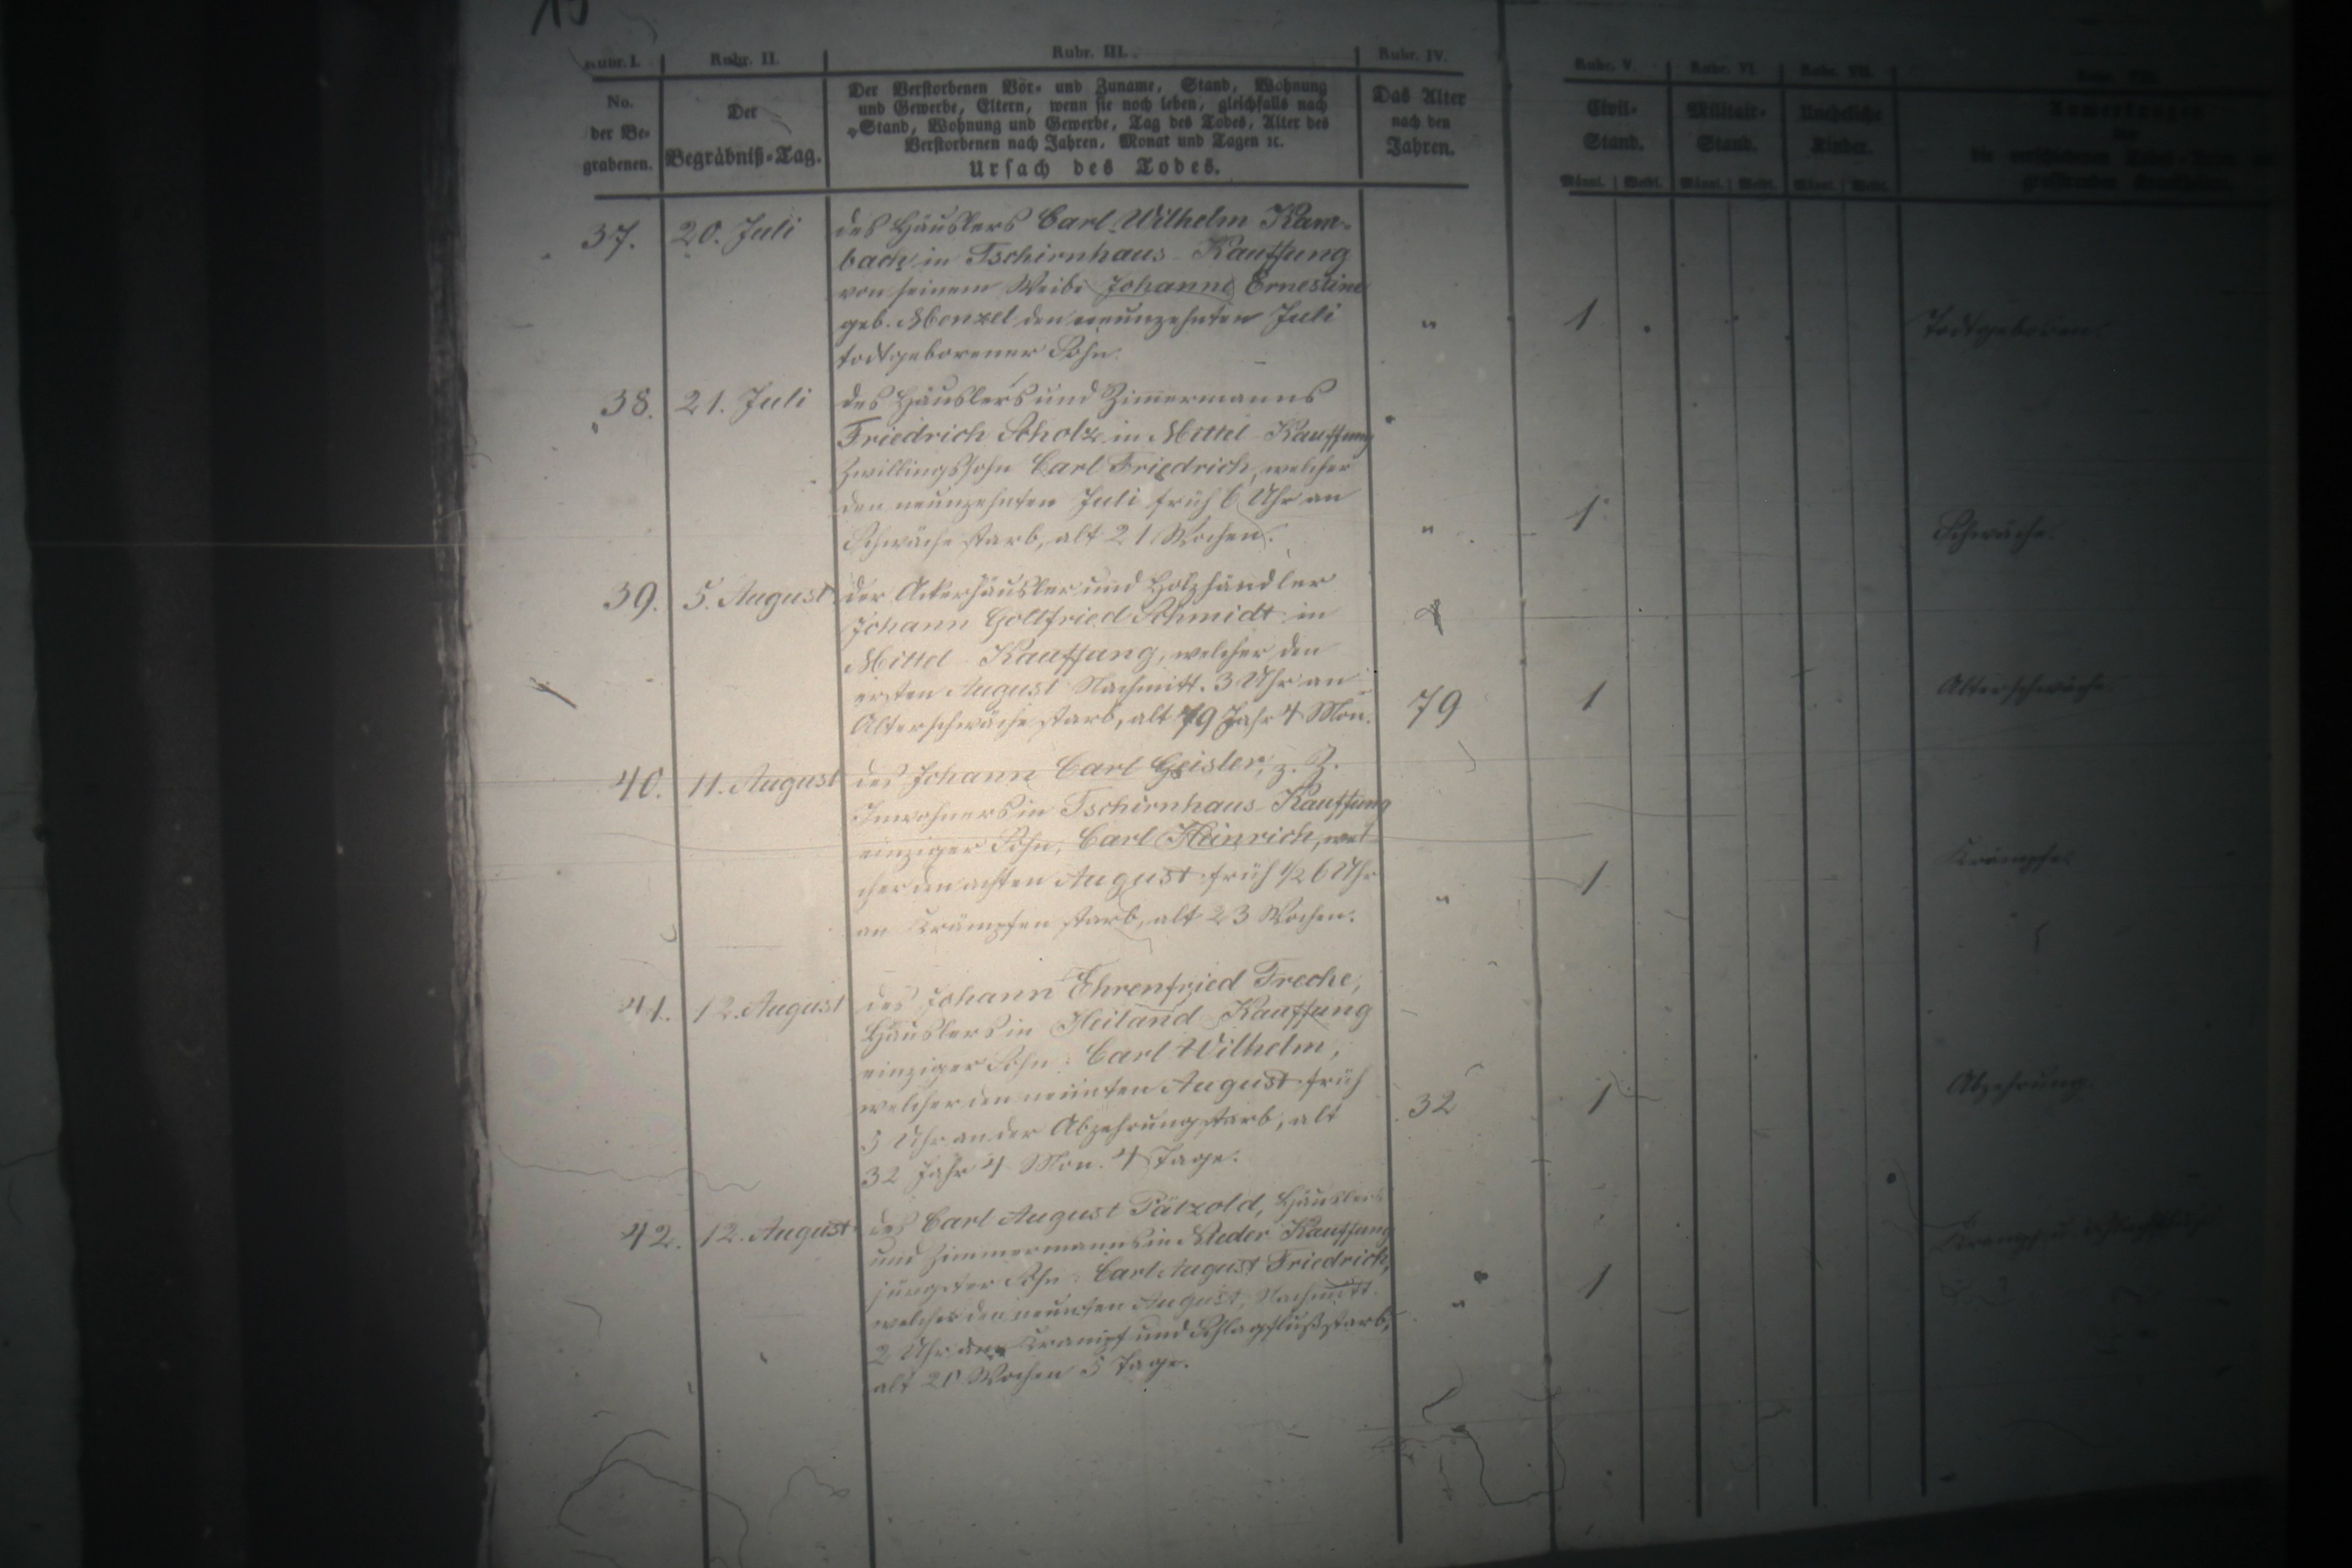 15
Rubr. I.
Rubr. II.
Rubr. III.
Rubr. IV.
Rubr. V.
Rubr. VI.
Rubr. VII.
No.
der Be-
grabenen.
Der
Begräbniß-Tag.
Der Verstorbenen Vor- und Zuname, Stand, Wohnung
und Gewerbe, Eltern, wenn sie noch leben, gleichfalls nach
Stand, Wohnung und Gewerbe, Tag des Todes, Alter des
Verstorbenen nach Jahren, Monat und Tagen ꝛc.
Ursach des Todes.
Das Alter
nach den
Jahren.
Civil-
Stand.
Militair-
Stand.
Uneheliche
Kinder.
Anmerkungen
Männl. | Weibl. Männl. | Weibl. Männl. | Weibl.
37. 20. Juli des Häuslers Carl Wilhelm Kam-
bach in Tschirnhaus-Kauffung
von seinem Weibe Johanne Ernestine
geb. Menzel den neunzehnten Juli " 1 Todtgeboren.
todtgeborener Sohn.
38. 21. Juli des Häuslers und Zimmermanns
Friedrich Scholz in Mittel-Kauffung
Zwillingssohn Carl Friedrich, welcher
den neunzehnten Juli früh 6 Uhr an
Schwäche starb, alt 21 Wochen. " 1 Schwäche.
39. 5. August der Ackerhäusler und Holzhändler
Johann Gottfried Schmidt in
Mittel-Kauffung, welcher den
ersten August Nachmitt. 3 Uhr an
Altersschwäche starb, alt 79 Jahr 4 Mon. 79 1 Altersschwäche.
40. 11. August des Johann Carl Geisler, z. Z.
Inwohners in Tschirnhaus-Kauffung
einziger Sohn, Carl Heinrich, wel-
cher den achten August früh ½ 6 Uhr
an Krämpfen starb, alt 23 Wochen. " 1 Krämpfe
41. 12. August des Johann Ehrenfried Freche,
Häuslers in Heiland-Kauffung
einziger Sohn: Carl Wilhelm,
welcher den neunten August früh
5 Uhr an der Abzehrung starb, alt
32 Jahr 4 Mon. 4 Tage. 32 1 Abzehrung.
42. 12. August des Carl August Pätzold, Häuslers
und Zimmermanns in Nieder-Kauffung
jüngster Sohn: Carl August Friedrich,
welcher den neunten August, Nachmitt.
2 Uhr an Krampf und Schlagfluß starb,
alt 20 Wochen 5 Tage. " 1 Krampf u. Schlagfluß